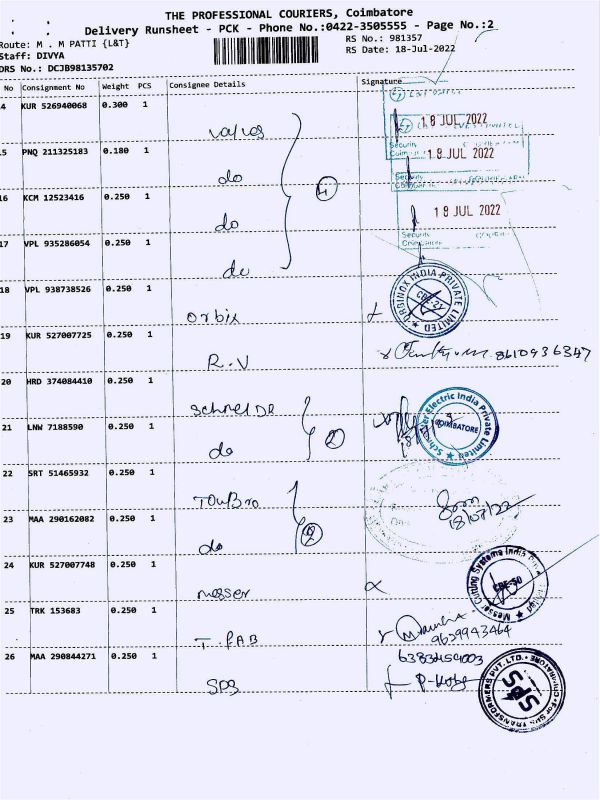 THE PROFESSIONAL COURIERS, Coimbatore
Delivery Runsheet - PCK - Phone No.:0422-3505555 - Page No.:2
Route: M . M PATTI {L&T}
RS No.: 981357
Staff: DIVYA
RS Date: 18-Jul-2022
DRS No.: DCJB98135702
No Consignment No Weight PCS Consignee Details Signature
14 KUR 526940068 0.300 1
18 JUL 2022
15 PNQ 211325183 0.180 1 do
Security
18 JUL 2022
16 KCM 12523416 0.250 1 do 4
Security
18 JUL 2022
17 VPL 935286054 0.250 1 do
Security
Coimbatore
18 VPL 938738526 0.250 1 orbix
ORBINOX INDIA PRIVATE LIMITED
CBE-21
19 KUR 527007725 0.250 1 R.V
8610936347
20 HRD 374084410 0.250 1 SchneiDe
Schneider Electric India Private Limited
COIMBATORE
21 LNW 7188590 0.250 1 do 2
22 SRT 51465932 0.250 1 TouBro
18/07/22
23 MAA 290162082 0.250 1 do 2
24 KUR 527007748 0.250 1 messer
Messer Cutting Systems India
CBE-50
25 TRK 153683 0.250 1 T. FAB
9629943464
26 MAA 290844271 0.250 1 SPS
6383454003
For SPS TRANSFORMERS PVT. LTD.
COIMBATORE
SPS